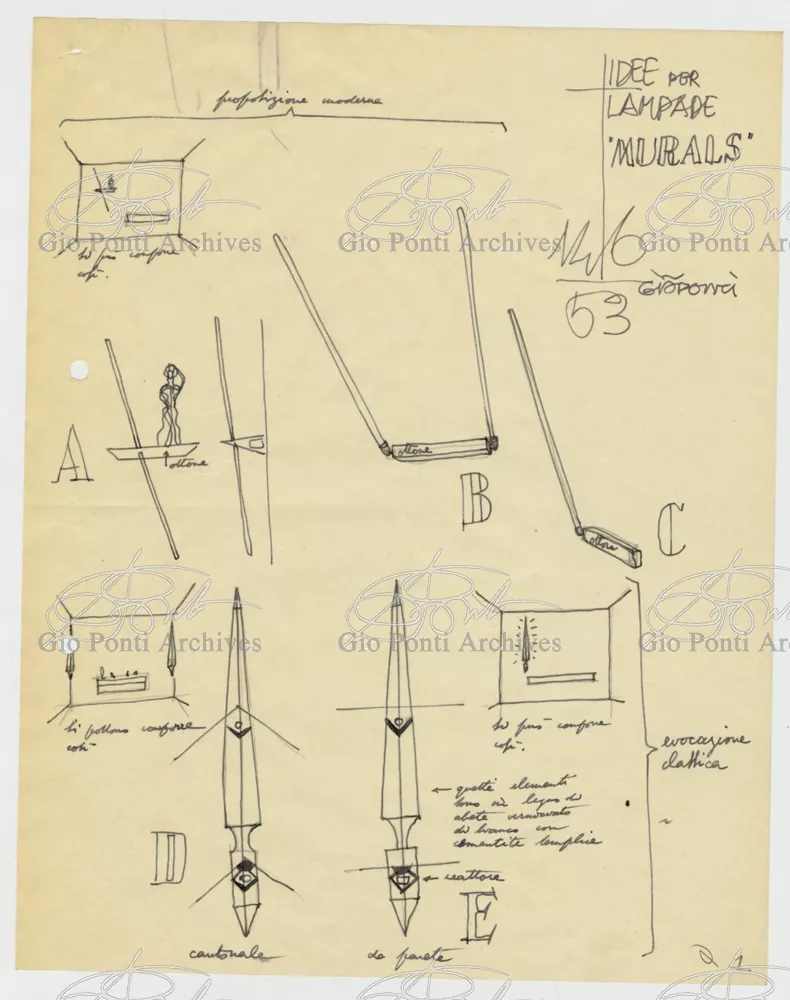 propotizione moderne
IDEE PER
LAMPADE
"MURALS"
53
GIO PONTI
si può comporre
così.
A
ottone
ottone
B
ottone
C
si possono comporre
così
si può comporre
così.
evocazione
classica
← questi elementi
sono in legno di
abete verniciato
di bianco con
cementite semplice
← reattore
D
E
cantonale
da parete
1
Gio Ponti Archives
Gio Ponti Archives
Gio Ponti Ar
Gio Ponti Archives
Gio Ponti Archives
Gio Ponti Ar